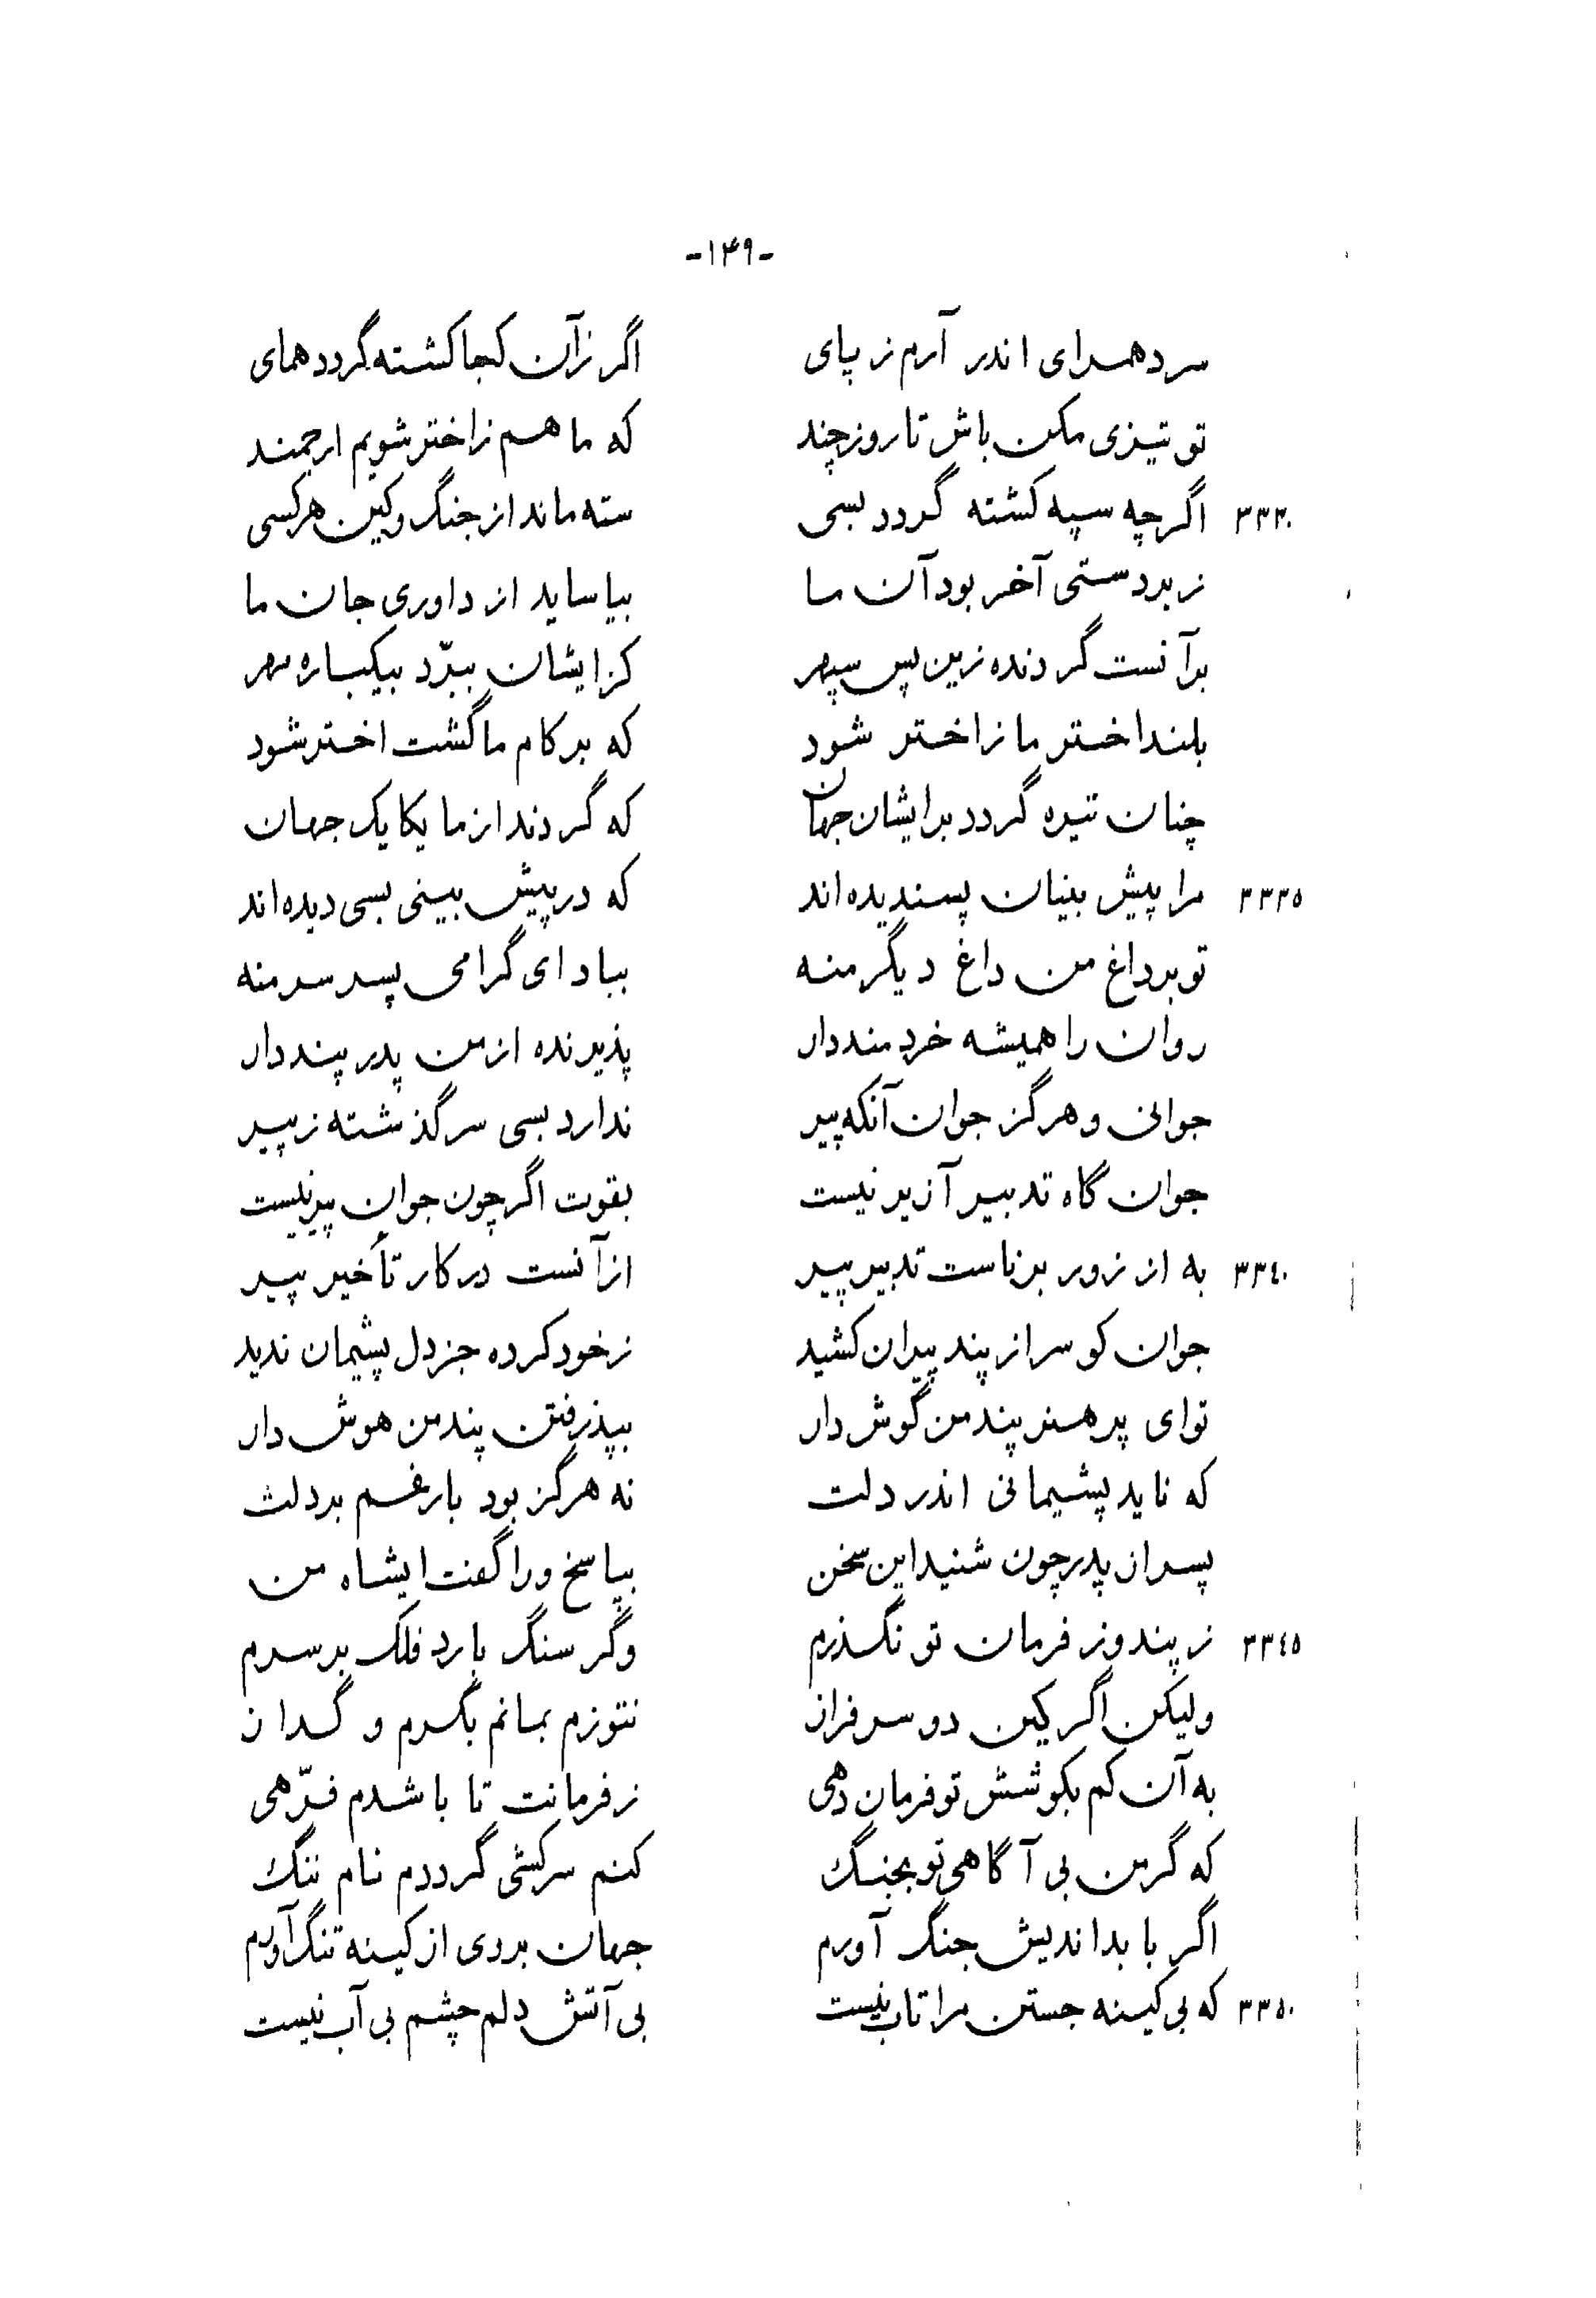 -۱۴۹-
سر دهرای اندر آرم ز پای اگر زآن کجا کشته گردد همای
تو تیزی مکن باش تا روز چند که ما هم ز اختر شویم ارجمند
۳۳۳۰ اگر چه سپه کشته گردد بسی سته ماند از جنگ و کین هر کسی
زبردستی آخر بود آن ما بیاساید از داوری جان ما
برآنست گردنده زین پس سپهر کز ایشان ببرّد بیکباره مهر
بلند اختر ما ز اختر شود که بر کام ما گشت اختر شود
چنان تیره گردد بر ایشان جهان که گردند از ما یکایک جهان
۳۳۳۵ مرا پیش بینان پسندیده‌اند که در پیش بینی بسی دیده‌اند
تو بر داغ من داغ دیگر منه بباد ای گرامی پسر سر منه
روان را همیشه خردمند دار پذیرنده از من پدر پند دار
جوانی و هرگز جوان آنکه پیر ندارد بسی سرگذشته ز پیر
جوان گاه تدبیر آزیر نیست بقوت اگر چون جوان پیر نیست
۳۳۴۰ به از زور برناست تدبیر پیر ازآنست در کار تأخیر پیر
جوان کو سر از پند پیران کشید ز خود کرده جز دل پشیمان ندید
تو ای پر هنر پند من گوش دار بپذرفتن پند من هوش دار
که ناید پشیمانی اندر دلت نه هرگز بود بار غم بر دلت
پسر از پدر چون شنید این سخن بپاسخ ورا گفت ایشاه من
۳۳۴۵ ز پند وز فرمان تو نگذرم وگر سنگ بارد فلک بر سرم
ولیکن اگر کین دو سرفراز نتوزم بمانم بگرم و گداز
به آن کم بکوشش تو فرمان دهی ز فرمانت تا باشدم فرّهی
که گر من بی آگاهی تو بجنگ کنم سرکشی گرددم نام ننگ
اگر با بداندیش جنگ آورم جهان بروی از کینه تنگ آورم
۳۳۵۰ که بی کینه جستن مرا تاب نیست بی آتش دلم چشم بی آب نیست